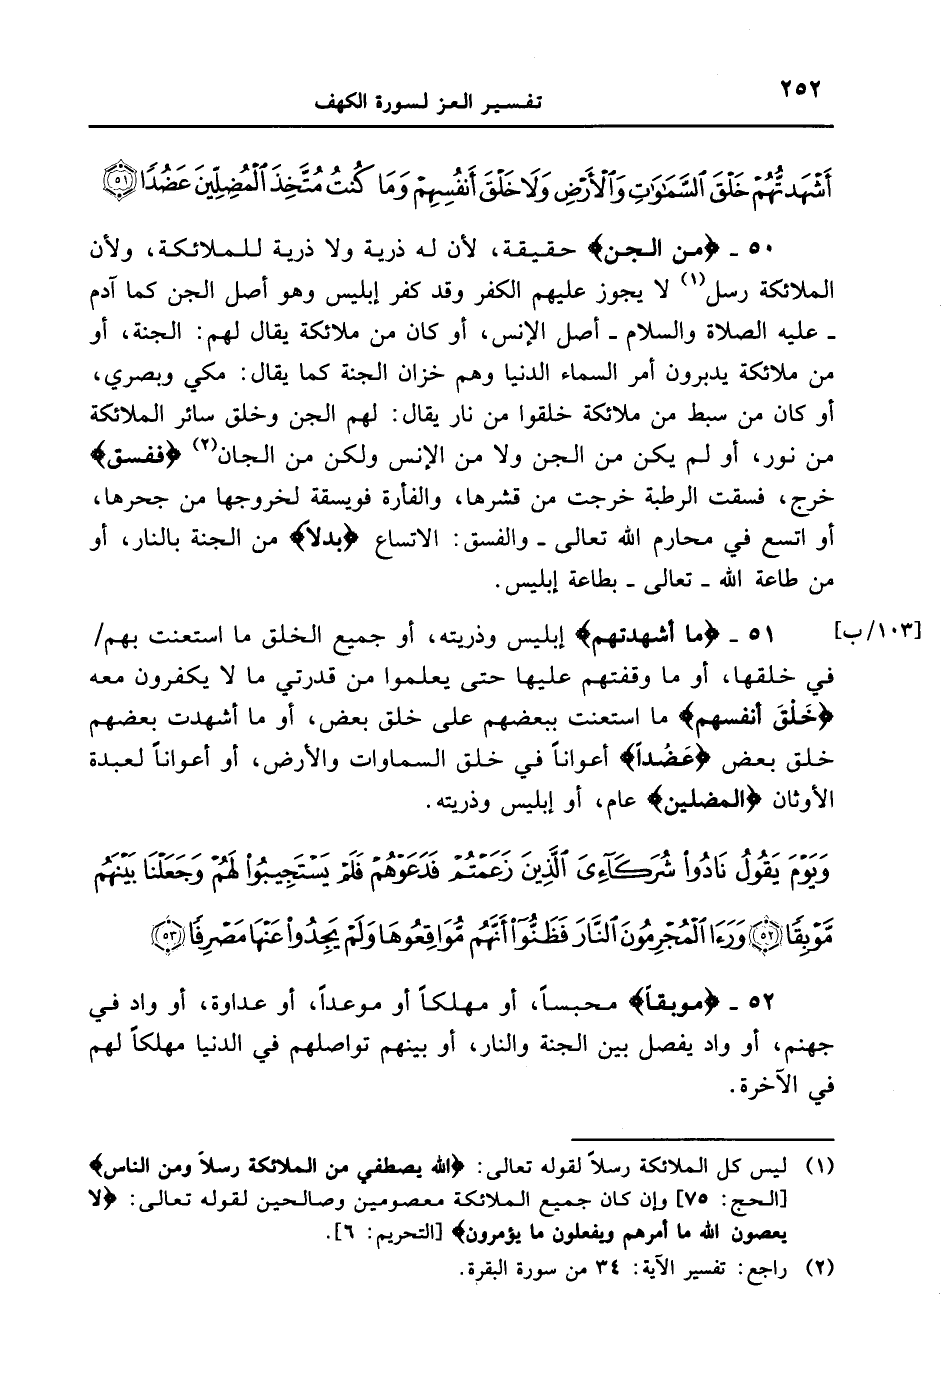 ٢٥٢
تفسير العز لسورة الكهف
أَشْهَدتُّهُمْ خَلْقَ ٱلسَّمَٰوَٰتِ وَٱلْأَرْضِ وَلَا خَلْقَ أَنفُسِهِمْ وَمَا كُنتُ مُتَّخِذَ ٱلْمُضِلِّينَ عَضُدًا ٥١
٥٠ ـ ﴿من الجن﴾ حقيقة، لأن له ذرية ولا ذرية للملائكة، ولأن
الملائكة رسل(١) لا يجوز عليهم الكفر وقد كفر إبليس وهو أصل الجن كما آدم
ـ عليه الصلاة والسلام ـ أصل الإنس، أو كان من ملائكة يقال لهم: الجنة، أو
من ملائكة يدبرون أمر السماء الدنيا وهم خزان الجنة كما يقال: مكي وبصري،
أو كان من سبط من ملائكة خلقوا من نار يقال: لهم الجن وخلق سائر الملائكة
من نور، أو لم يكن من الجن ولا من الإنس ولكن من الجان(٢) ﴿ففسق﴾
خرج، فسقت الرطبة خرجت من قشرها، والفأرة فويسقة لخروجها من جحرها،
أو اتسع في محارم الله تعالى ـ والفسق: الاتساع ﴿بدلاً﴾ من الجنة بالنار، أو
من طاعة الله ـ تعالى ـ بطاعة إبليس.
٥١ ـ ﴿ما أشهدتهم﴾ إبليس وذريته، أو جميع الخلق ما استعنت بهم/ [١٠٣/ب]
في خلقها، أو ما وقفتهم عليها حتى يعلموا من قدرتي ما لا يكفرون معه
﴿خَلْقَ أنفسهم﴾ ما استعنت ببعضهم على خلق بعض، أو ما أشهدت بعضهم
خلق بعض ﴿عَضُداً﴾ أعواناً في خلق السماوات والأرض، أو أعواناً لعبدة
الأوثان ﴿المضلين﴾ عام، أو إبليس وذريته.
وَيَوْمَ يَقُولُ نَادُوا۟ شُرَكَآءِىَ ٱلَّذِينَ زَعَمْتُمْ فَدَعَوْهُمْ فَلَمْ يَسْتَجِيبُوا۟ لَهُمْ وَجَعَلْنَا بَيْنَهُم
مَّوْبِقًا ٥٢ وَرَءَا ٱلْمُجْرِمُونَ ٱلنَّارَ فَظَنُّوٓا۟ أَنَّهُم مُّوَاقِعُوهَا وَلَمْ يَجِدُوا۟ عَنْهَا مَصْرِفًا ٥٣
٥٢ ـ ﴿موبقاً﴾ محبساً، أو مهلكاً أو موعداً، أو عداوة، أو واد في
جهنم، أو واد يفصل بين الجنة والنار، أو بينهم تواصلهم في الدنيا مهلكاً لهم
في الآخرة.
(١) ليس كل الملائكة رسلاً لقوله تعالى: ﴿الله يصطفي من الملائكة رسلاً ومن الناس﴾
[الحج: ٧٥] وإن كان جميع الملائكة معصومين وصالحين لقوله تعالى: ﴿لا
يعصون الله ما أمرهم ويفعلون ما يؤمرون﴾ [التحريم: ٦].
(٢) راجع: تفسير الآية: ٣٤ من سورة البقرة.